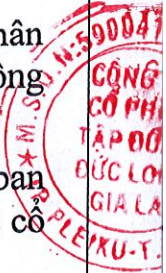 hân
ông
ban
cổ
M.S.D.N:590041
CÔNG
CỔ PH
TẬP ĐO
ĐỨC LO
GIA LA
PLEIKU-T.